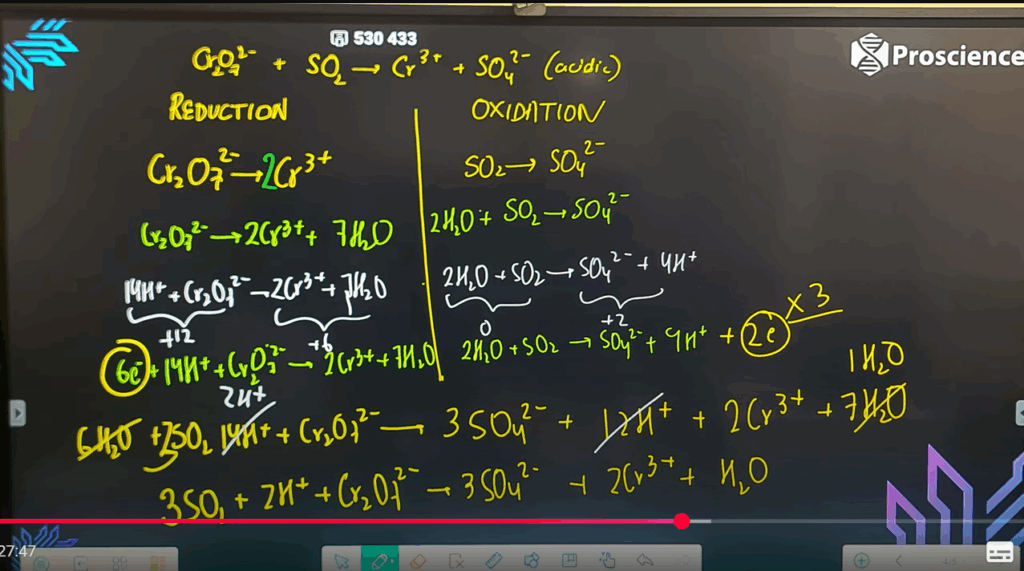 530 433
Proscience
Cr₂O₇²⁻ + SO₂ → Cr³⁺ + SO₄²⁻ (acidic)
REDUCTION
Cr₂O₇²⁻ → 2Cr³⁺
Cr₂O₇²⁻ → 2Cr³⁺ + 7H₂O
14H⁺ + Cr₂O₇²⁻ → 2Cr³⁺ + 7H₂O
+12 +6
6e⁻ + 14H⁺ + Cr₂O₇²⁻ → 2Cr³⁺ + 7H₂O
OXIDATION
SO₂ → SO₄²⁻
2H₂O + SO₂ → SO₄²⁻
2H₂O + SO₂ → SO₄²⁻ + 4H⁺
0 +2
2H₂O + SO₂ → SO₄²⁻ + 4H⁺ + 2e⁻ ×3
2H⁺ 1H₂O
6H₂O + 3SO₂ 14H⁺ + Cr₂O₇²⁻ → 3SO₄²⁻ + 12H⁺ + 2Cr³⁺ + 7H₂O
3SO₂ + 2H⁺ + Cr₂O₇²⁻ → 3SO₄²⁻ + 2Cr³⁺ + H₂O
27:47